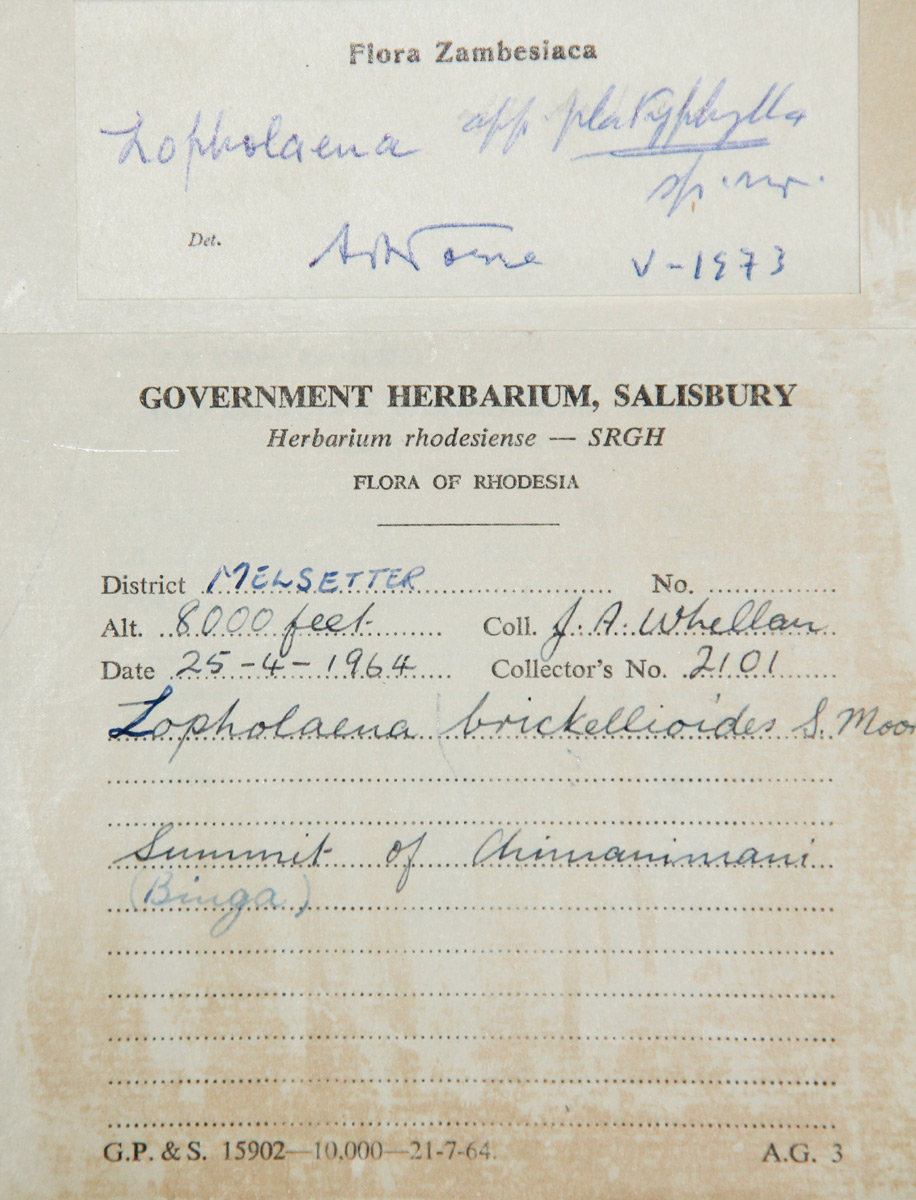 Flora Zambesiaca
Lopholaena aff. platyphylla
sp. nov.
Det. V-1973
GOVERNMENT HERBARIUM, SALISBURY
Herbarium rhodesiense — SRGH
FLORA OF RHODESIA
District MELSETTER No.
Alt. 8000 feet Coll. J. A. Whellan
Date 25-4-1964 Collector's No. 2101
Lopholaena brickellioides S. Moor
Summit of Chimanimani
(Binga)
G.P. & S. 15902—10,000—21-7-64. A.G. 3